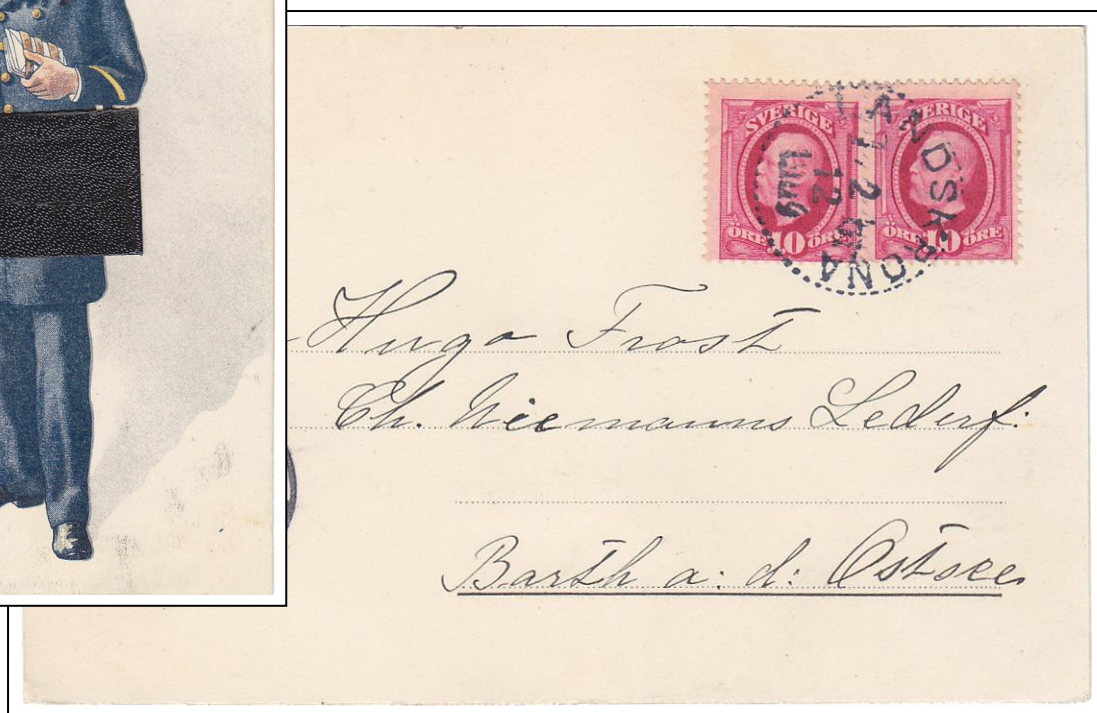 SVERIGE SVERIGE
ÖRE 10 ÖRE ÖRE 10 ÖRE
LANDSKRONA
12
Hugo Frost
Ch. Niemanns Lederf.
Barth a. d. Ostsee